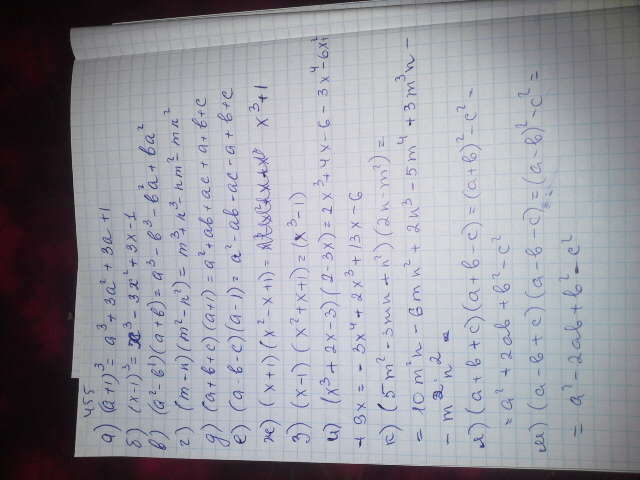 455
а) (a+1)³ = a³ + 3a² + 3a + 1
б) (x-1)³ = x³ - 3x² + 3x - 1
в) (a²-b²)(a+b) = a³ - b³ - b²a + ba²
г) (m-n)(m²-n²) = m³ + n³ - nm² - mn²
д) (a+b+c)(a+1) = a² + ab + ac + a + b + c
е) (a-b-c)(a-1) = a² - ab - ac - a + b + c
ж) (x+1)(x²-x+1) = x³ + 1
з) (x-1)(x²+x+1) = (x³-1)
и) (x³+2x-3)(2-3x) = 2x³ + 4x - 6 - 3x⁴ - 6x² +
+ 9x = -3x⁴ + 2x³ + 13x - 6
к) (5m² - 3mn + n²)(2n - m²) =
= 10m²n - 6mn² + 2n³ - 5m⁴ + 3m³n -
- m²n² =
л) (a+b+c)(a+b-c) = (a+b)² - c² =
= a² + 2ab + b² - c²
м) (a-b+c)(a-b-c) = (a-b)² - c² =
= a² - 2ab + b² - c²